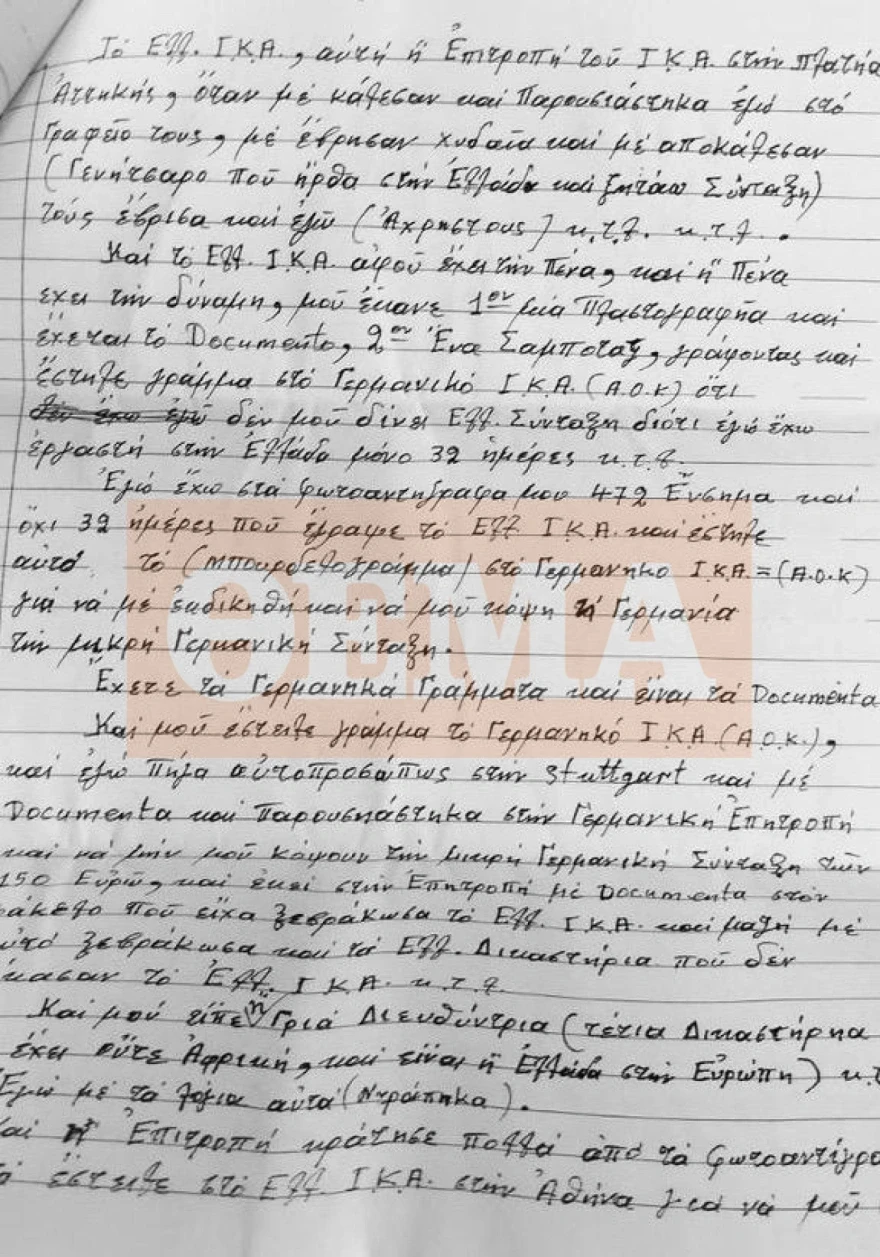 Τό Ελλ. Ι.Κ.Α., αὐτή ἡ Ἐπιτροπή τοῦ Ι.Κ.Α. στήν πλατήα
Ἀττηκής, ὅταν μέ κάλεσαν καί Παρουσιάστηκα ἐγώ στό
Γραφεῖο τους, μέ ἔβρησαν χυδαῖα καί μέ αποκάλεσαν
(Γενήτσαρο ποῦ ἦρθα στήν Ἑλλάδα καί ζητάω Σύνταξη)
τούς ἔβρισα καί ἐγῶ (Ἀχρηστους) κ.τ.λ. κ.τ.λ.
Καί τό Ελλ. Ι.Κ.Α. αφοῦ ἔχει τήν Πένα, καί ἡ Πένα
εχει τήν δύναμη, μοῦ ἔκανε 1ον μία Πλαστογραφηα καί
ἔχεται τό Documento, 2ον Ἕνα Σαμποταζ, γράφοντας καί
ἔστηλε γράμμα στό Γερμανικό Ι.Κ.Α. (Α.Ο.Κ) ὅτι
δέν ἔχω ἐγῶ δέν μοῦ δίνει Ελλ. Σύνταξη διότι ἐγώ ἔχω
ἐργαστή στήν Ἑλλάδα μόνο 32 ἡμέρες κ.τ.λ.
Ἐγώ ἔχω στά φωτοαντηγραφα μου 472 Ἔνσημα καί
ὄχι 32 ἡμέρες ποῦ ἔγραψε τό Ελλ Ι.Κ.Α. καί ἔστηλε
αὐτό τό (μπουρδελογράμμα) στό Γερμανηκο Ι.Κ.Α. = (Α.Ο.Κ)
γιά νά μέ ἐκδικηθή καί νά μοῦ κόψη ἡ Γερμανία
τήν μικρή Γερμανική Σύνταξη.
Ἔχετε τά Γερμανηκά Γράμματα καί εἶναι τά Documenta
Καί μοῦ ἔστειλε γράμμα τό Γερμανηκό Ι.Κ.Α. (Α.Ο.Κ.),
καί ἐγώ πήγα αὐτοπροσώπως στήν Stuttgart καί μέ
Documenta καί Παρουσηάστηκα στήν Γερμανική Ἐπητροπή
καί νά μήν μοῦ κόψουν τήν μικρή Γερμανική Σύνταξη τῶν
150 Εὐρώ, καί ἐκεί στήν Ἐπητροπή μέ Documenta στόν
άκελο ποῦ εἶχα ξεβράκωσα τό Ελλ. Ι.Κ.Α. καί μαζή μέ
ὐτό ξεβράκωσα καί τά Ελλ. Δικαστήρια ποῦ δέν
ίκασαν τό Ἑλλ. Ι.Κ.Α. κ.τ.λ.
Καί μοῦ εἶπε ἡ Γριά Διευθύντρια (τέτια Δικαστήρηα
ἔχει οὔτε Ἀφρική, καί εἶναι ἡ Ἑλλάδα στήν Εὐρώπη) κ.τ
Ἐγώ μέ τά λόγια αὐτά (Ντράπηκα).
Καί ἡ Ἐπιτροπή κράτησε πολλά ἀπό τά φωτοαντίγρα
ά ἔστειλε στό Ελλ. Ι.Κ.Α. στήν Ἀθήνα γιά νά μοῦ
ΘΕΜΑ